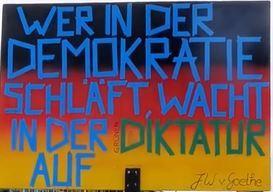 WER IN DER
DEMOKRATIE
SCHLÄFT, WACHT
IN DER GRÜNEN DIKTATUR
AUF
J.W v. Goethe